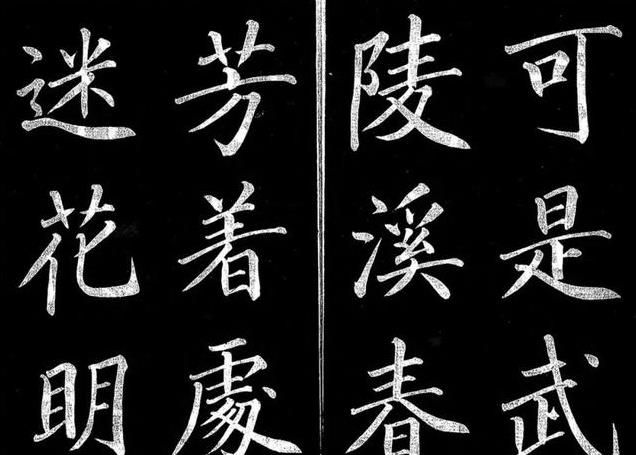 可是武
陵溪春
芳着處
迷花明